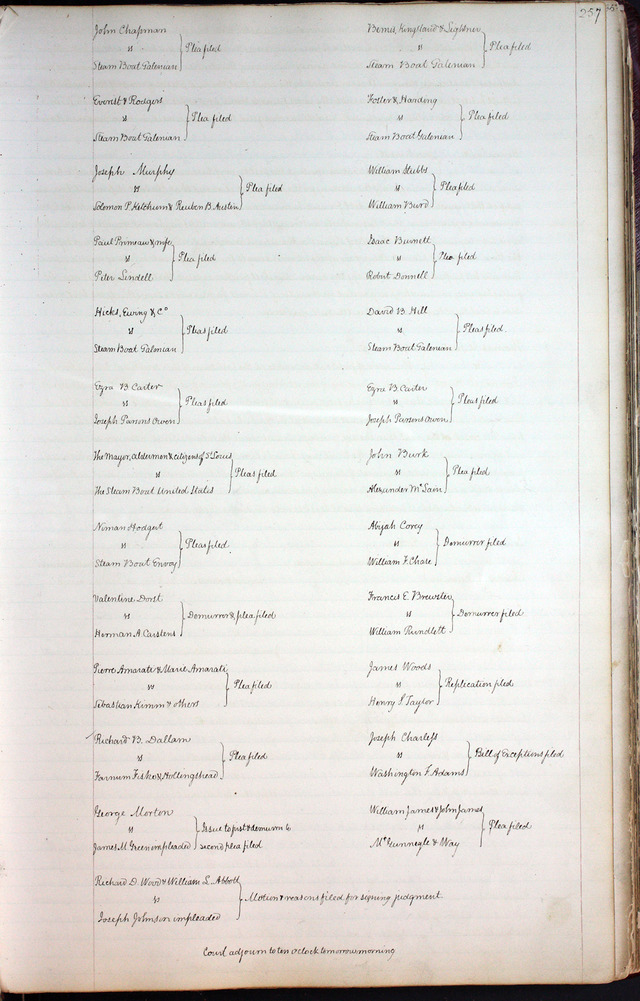 257
John Chapman
vs
Steam Boat Galenian
Plea filed
Bemis, Kingsland & Lightner
vs
Steam Boat Galenian
Plea filed
Everist & Rodgers
vs
Steam Boat Galenian
Plea filed
Foster & Harding
vs
Steam Boat Galenian
Plea filed
Joseph Murphy
vs
Solomon P. Ketchum & Reuben B. Austin
Plea filed
William Stubbs
vs
William Burd
Plea filed
Paul Primeau & wife
vs
Peter Lindell
Plea filed
Isaac Burnett
vs
Robert Donnell
Plea filed
Hicks, Ewing & Co
vs
Steam Boat Galenian
Pleas filed
David B. Hill
vs
Steam Boat Galenian
Pleas filed.
Ezra B. Carter
vs
Joseph Parsons Owen
Pleas filed
Ezra B. Carter
vs
Joseph Parsons Owen
Pleas filed
The Mayor, aldermen & citizens of St Louis
vs
The Steam Boat United States
Pleas filed
John Burk
vs
Alexander McLain
Plea filed
vs
Steam Boat Envoy
Pleas filed
Abijah Corey
vs
William F. Chase
Demurrer filed
Valentine Dorst
vs
Herman A. Carstens
Demurrer & plea filed
Francis E. Brewster
vs
William Rundlett
Demurrer filed
Pierre Amarate & Marie Amarati
vs
Sebastian Kimm & others
Plea filed
James Woods
vs
Henry S. Taylor
Replication filed
Richard B. Dallam
vs
Farnum Fiske & Hollingshead
Plea filed
Joseph Charless
vs
Washington F. Adams
Bill of Exceptions filed
George Morton
vs
James M. Green impleaded
Issue to first & demurrer to
second plea filed
William James & John James
vs
McGunnegle & Way
Plea filed
Richard D. Wood & William S. Abbott
vs
Joseph Johnson impleaded
Motion & reasons filed for signing judgment
Court adjourn to ten o'clock tomorrow morning